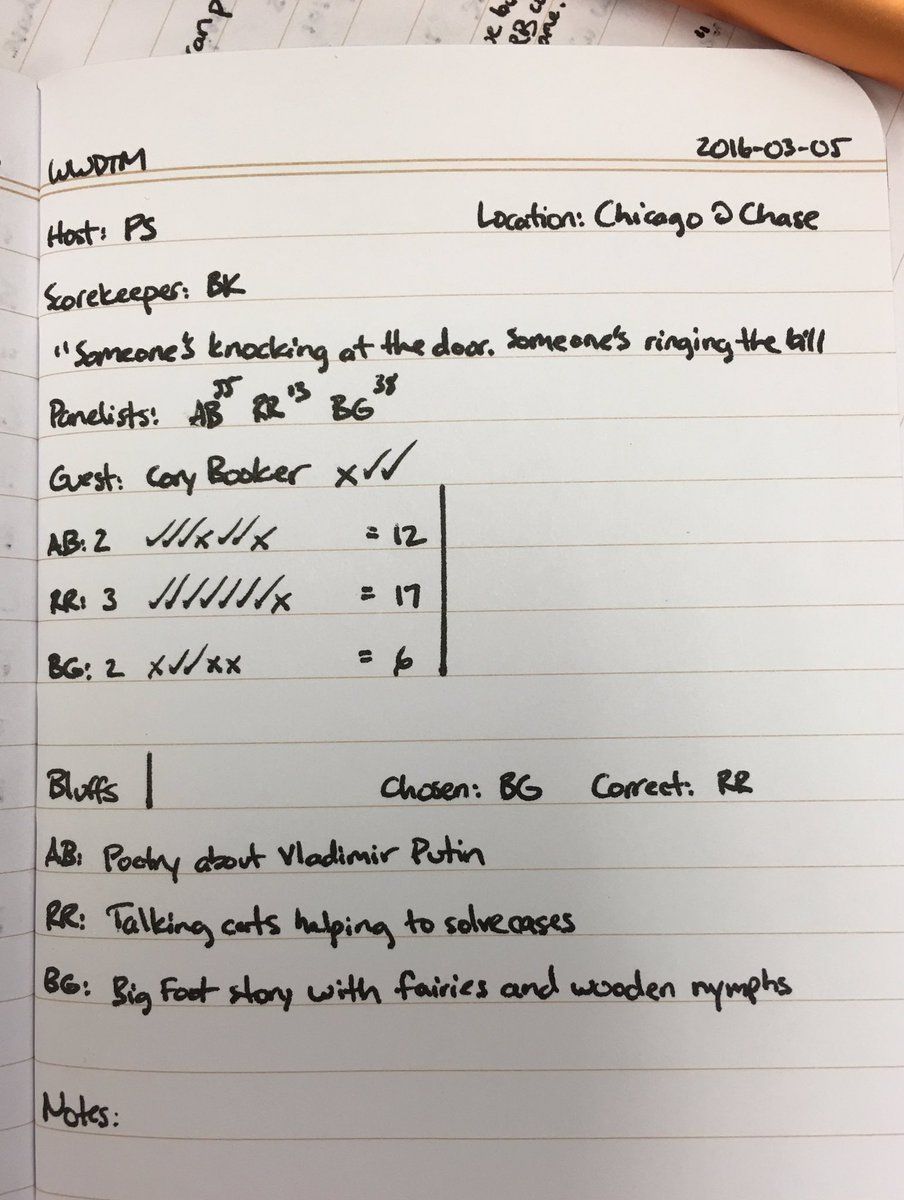 WWDTM 2016-03-05
Host: PS Location: Chicago @ Chase
Scorekeeper: BK
"Someone's knocking at the door. Someone's ringing the bill
Panelists: AB RR '13 BG 38
Guest: Cory Booker x✓✓
AB: 2 ✓✓✓x✓✓x = 12
RR: 3 ✓✓✓✓✓✓✓x = 17
BG: 2 x✓✓xx = 6
Bluffs Chosen: BG Correct: RR
AB: Poetry about Vladimir Putin
RR: Talking cats helping to solve cases
BG: Big Foot story with fairies and wooden nymphs
Notes: